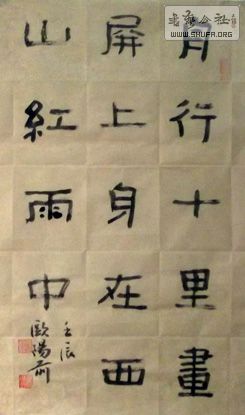 舟行十里畫
屏上身在西
山紅雨中
壬辰
歐陽
公社
WWW.SHUFA.ORG